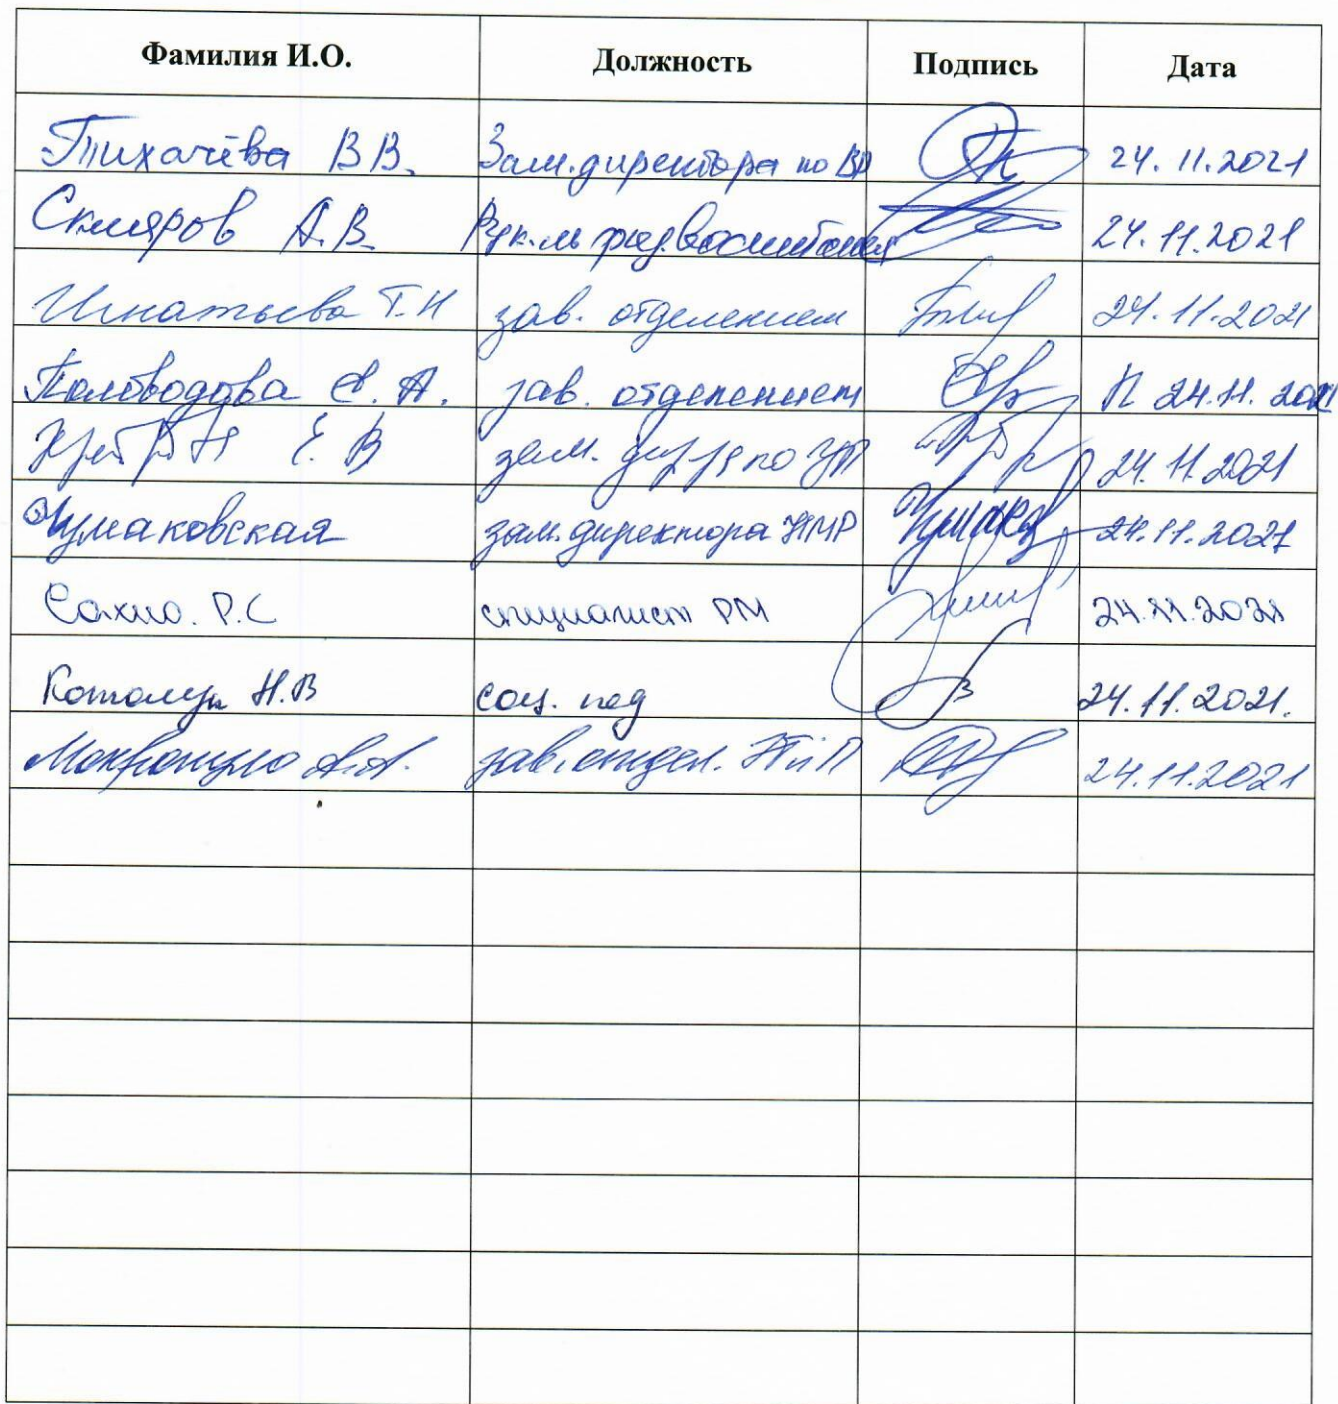 Фамилия И.О. Должность Подпись Дата
Тихачёва В В. Зам.директора по ВР 24.11.2021
Скляров А.В. Рук.ль физвоспитания 24.11.2021
Игнатьева Т.Н зав. отделением 24.11.2021
Полководова Е.А. зав. отделением П 24.11.2021
Е. В зам. по УП 24.11.2021
Чумаковская зам.директора НМР 24.11.2021
Сахно. Р.С специалист РМ 24.11.2021
Н.В соц. пед 24.11.2021.
А.А. зав. отдел. 24.11.2021